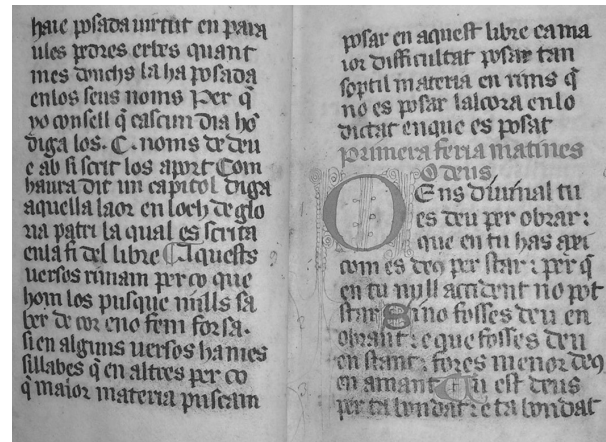 haie posada uirtut en para
ules pedres erbes quant
mes donchs la ha posada
en los seus noms Per q̃
yo consell q̃ cascun dia hõ
diga los .C. noms de deu
e ab si scrit los aport Com
haura dit un capitol diga
aquella laor en loch de glo
ria patri la qual es scrita
en la fi del libre Aquests
uersos rimam per co que
hom los pusque mills sa
ber de cor e no fem forsa.
si en alguns uersos ha mes
sillabes q̃ en altres per co
q̃ maior materia puscam
posar en aquest libre ca ma
ior difficultat posar tan
soptil materia en rims q̃
no es posar lalcora en lo
dictat en que es posat
primera feria matines
O deus
Ens diuinal tu
es deu per obrar:
que en tu has axi
com es deq̃ per star: per q̃
en tu null accident no pot
star Si no fosses deu en
obrant: e que fosses deu
en stant: fores menor deq̃
en amant Tu est deus
per ta bondat: e ta bondat